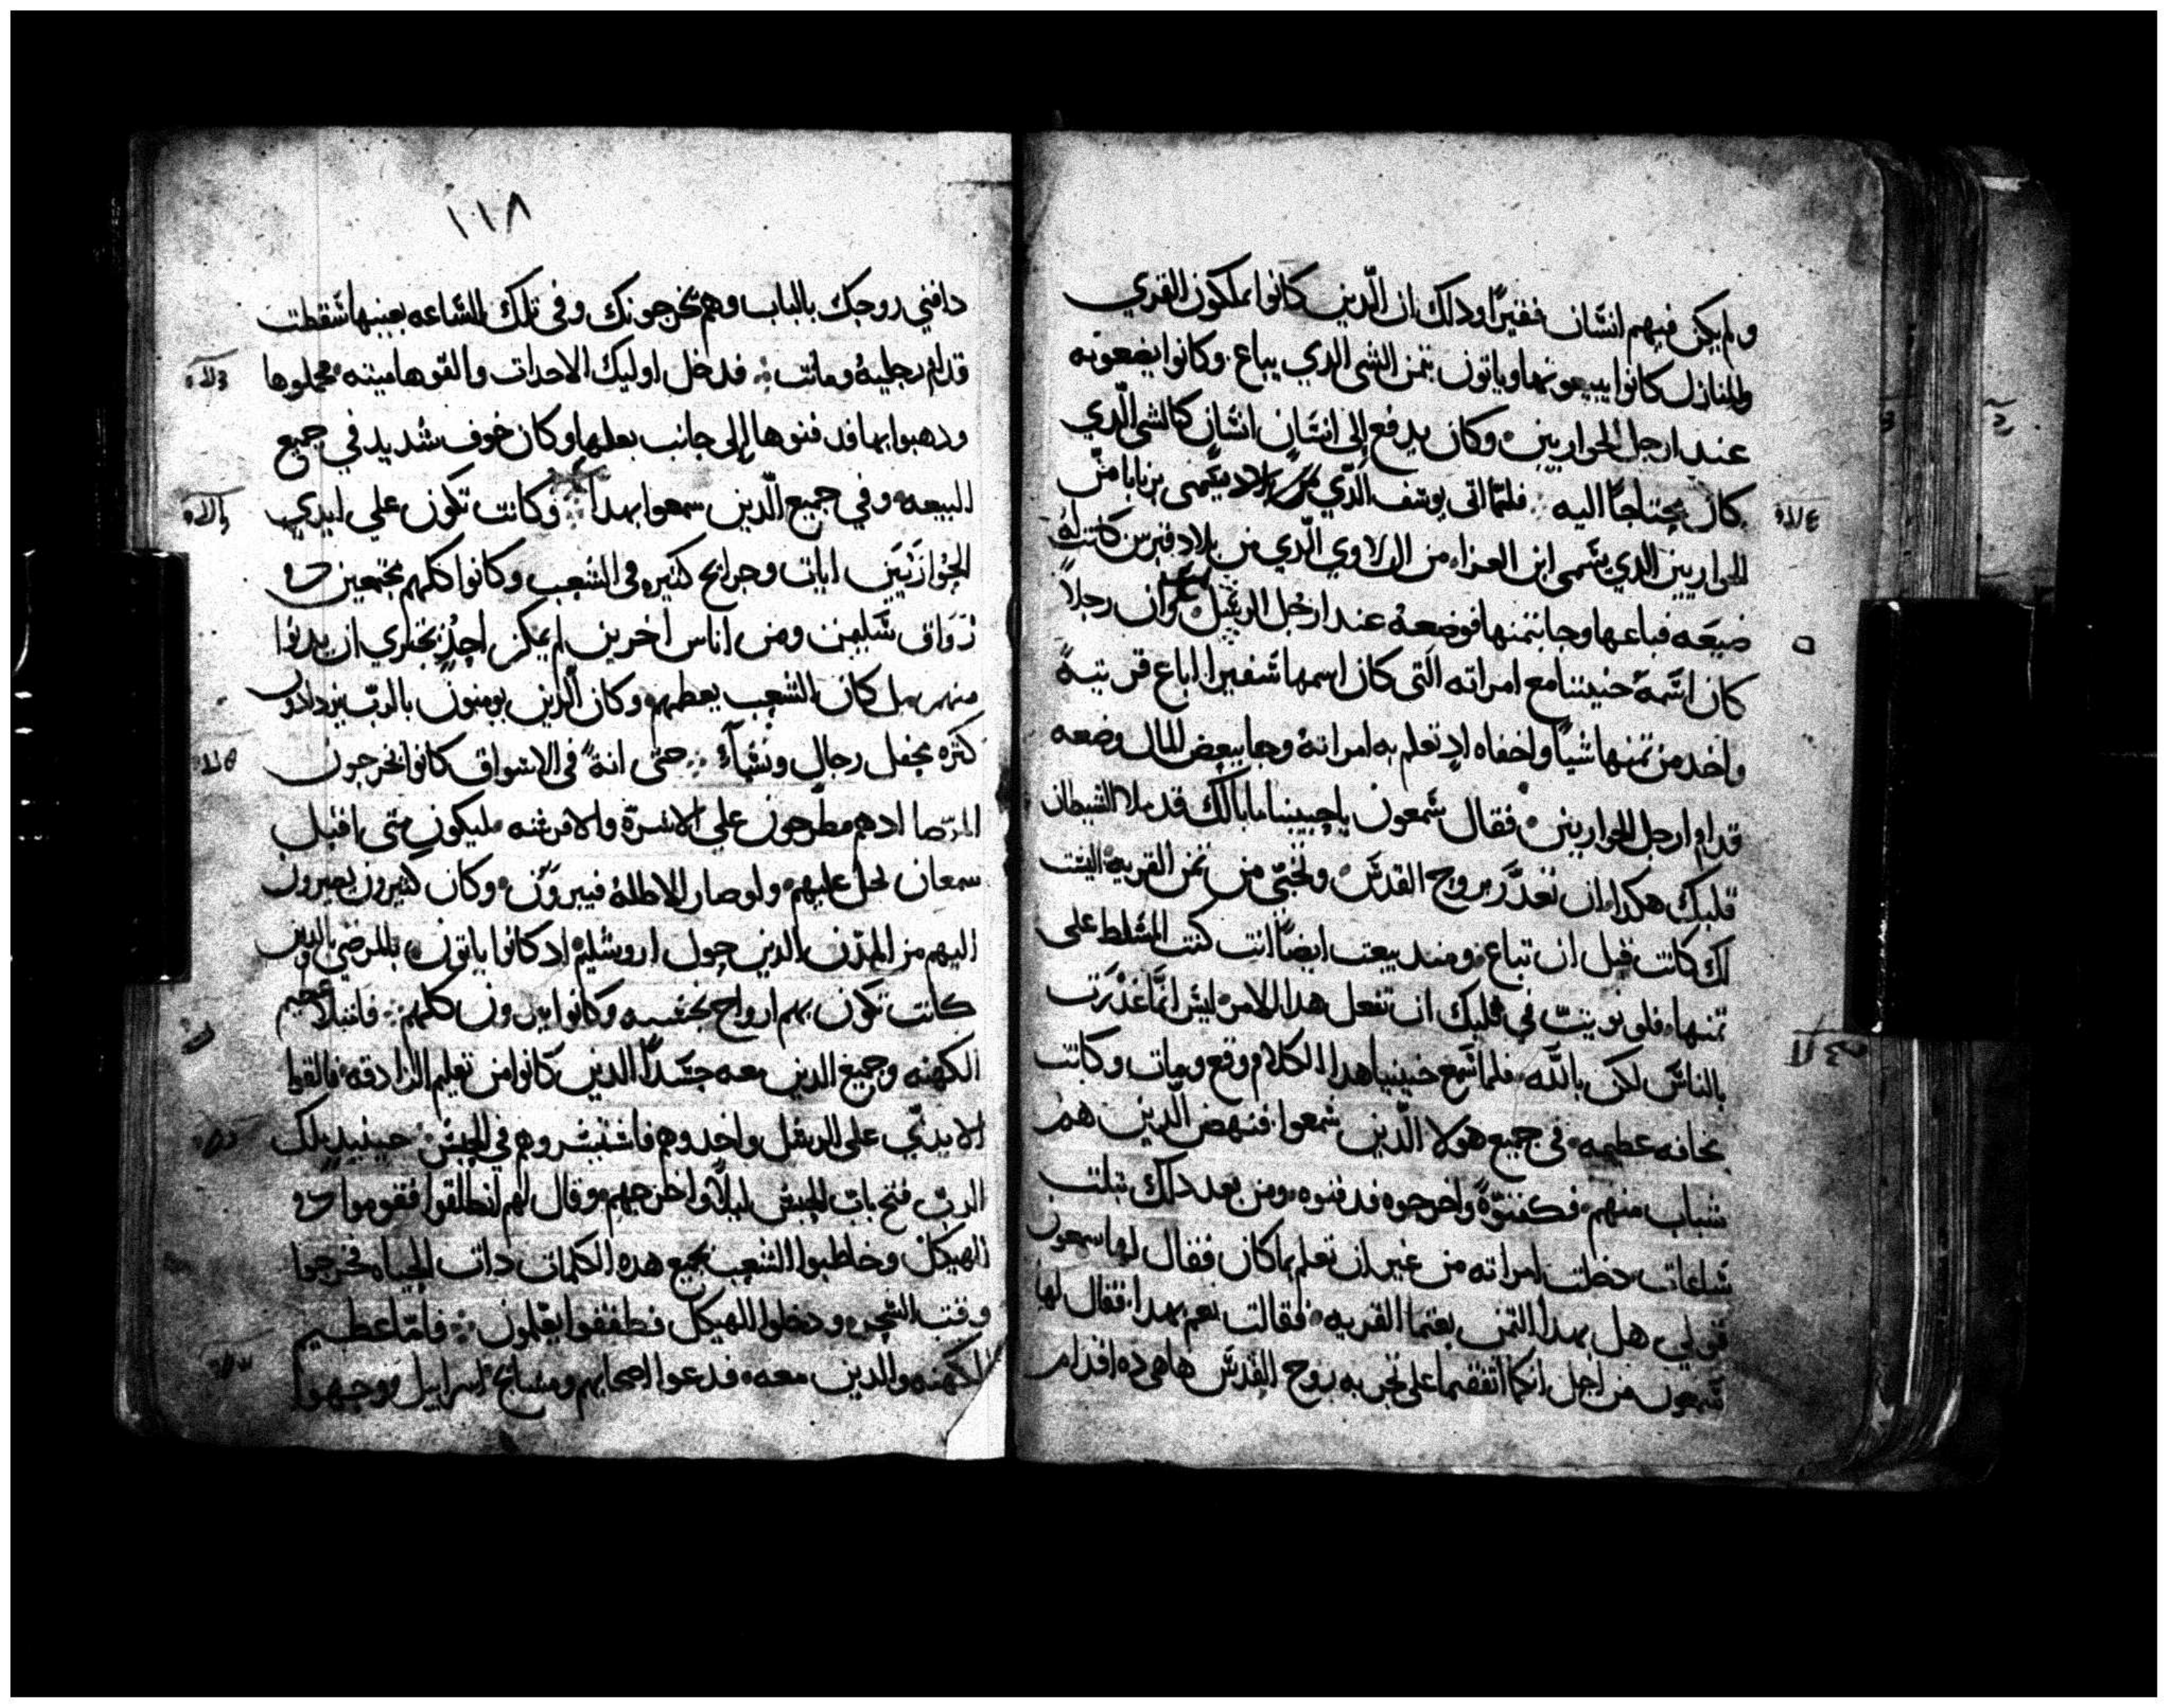 ولم يكن فيهم انسان فقيرًا وداك ان الّدين كانوا يملكون القري
والمنازل كانوا يبيعونها وياتون بتمن الشي الدي يباع. وكانوا يضعونه
عند ارجل الحواريين ° وكان يدفع الى انسان انسان كالشي الّدي
كان محتاجًا اليه ⁘ فامّا القى يوسف الّدي يسمى برنابا من
الحواريين الدي يسمى ابن العزاء من اللاوي الّدي من بلاد قبرس كانت له
ضيعه فباعها وجا بتمنها فوضعه عند ارجل الرسل وان رجلاً
كان اسمه حنينا مع امراته الّتي كان اسمها شفيرا اباع قريته
واخد من تمنها شياً واخفاه اد تعلم به امراته وجا ببعض المال وضعه
قدام ارجل الحواريين ° فقال شمعون يا حنينا ما بالك قد ملا الشيطان
قلبك هكدا ان تغدر بروح القدس ° وتخبّي من تمن القريه اليست
لك كانت قبل ان تباع ومند بيعت ايضاً انت كنت المسلط على
تمنها فلم نويت في قلبك ان تفعل هدا الامر ليس انّما غدرت
بالناس لكن بالله فلما سمع حنينا هدا الكلام وقع ومات وكانت
مخافه عظيمه في جميع هولا الّدين سمعوا فنهض الّدين هم
شباب منهم فكفنوه واخرجوه فدفنوه ومن بعد داك بتلت
ساعات دخلت امراته من غير ان تعلم بما كان فقال لها سمعون
قولي هل بهدا التمن بعتما القريه فقالت نعم بهدا فقال لها
شمعون من اجل انكما اتفقتما على تجربه بروح القدس ها هي ده اقدام
١١٨
دافني زوجك بالباب وهم يخرجونك وفي تلك الساعه بعينها سقطت
قدام رجليه وماتت ⁘ فدخل اوليك الاحدات والقوها ميته فحملوها
ودهبوا بها فدفنوها الى جانب بعلها وكان خوف شديد في جميع
البيعه وفي جميع الّدين سمعوا بهدا ⁘ وكانت تكون على ايدي
الحواريين ايات وجرايح كتيره في الشعب وكانوا كلهم مجتمعين في
رواق سليمن ومن اناس اخرين لم يكن احد يجتري ان يدنوا
منهم بل كان الشعب يعظمهم وكان الّدين يومنون بالربّ يزدادون
كتره بحفل رجال ونساء ⁘ حتى انه في الاسواق كانوا يخرجون
المرضا اد هم مطرحون على الاسرّة والافرشه ليكون متى اقبل
سمعان لحل عليهم ولو صار الاظلة فيبرون ° وكان كثيرون يصيرون
اليهم من المدن الدين حول اروشليم اد كانوا ياتون بالمرضى والدين
كانت تكون بهم ارواح نجسه وكانوا يبرون كلهم ⁘ فامتلا عظيم
الكهنه وجميع الدين معه حسداً الدين كانوا من تعليم الزادقه فالقوا
الايدي على الرسل واخدوهم فاستبشروهم في الحبس حينيد ملك
الرب فتح باب الحبس ليلاً واخرجهم وقال لهم انطلقوا فقوموا في
الهيكل وخاطبوا الشعب بجميع هده الكلمات دات الحياه فخرجوا
وقت السحر ودخلوا الهيكل فطفقوا يعلمون ⁘ فامّا عظيم
الكهنه والدين معه فدعوا اصحابهم ومشايخ اسراييل فوجهوا